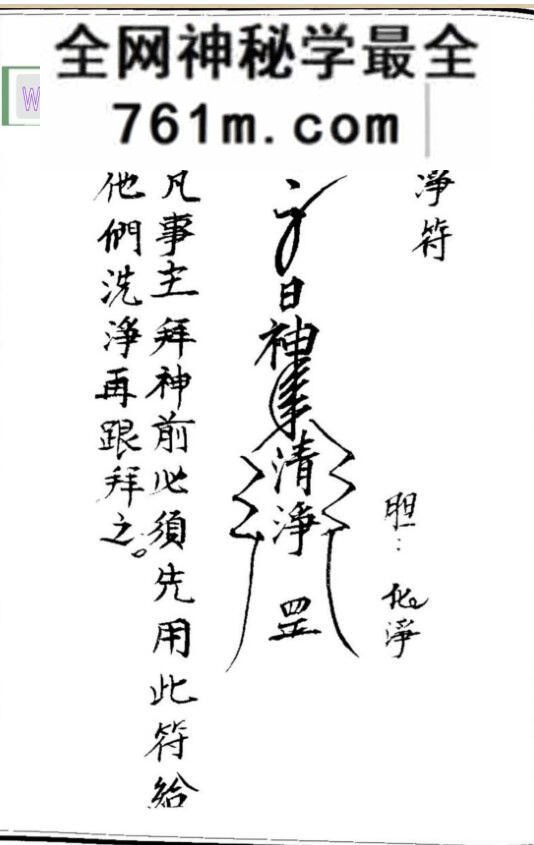 全网神秘学最全
761m.com
W
淨符
胆：化淨
日神清淨罡
凡事主拜神前必須先用此符給
他們洗淨再跟拜之。